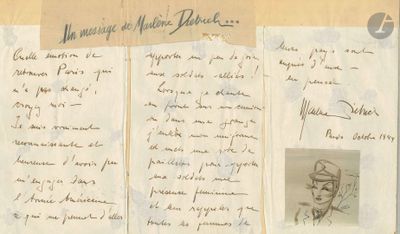 Un message de Marlène Dietrich...
Quelle émotion de
retrouver Paris qui
n'a pas changé,
croyez moi -
Je suis vraiment
reconnaissante et
heureuse d'avoir pu
m'engager dans
l'Armée Américaine
à qui me permet d'aller
apporter un peu de joie
aux soldats alliés!
Lorsque je chante
en forêt sur un camion
ou dans une grange
j'enlève mon uniforme
et mets une robe de
paillettes pour apporter
aux soldats une
présence féminine
et leur rappeler que
toutes les femmes de
leurs pays sont
auprès d'eux -
en pensée
Marlene Dietrich
Paris Octobre 1944